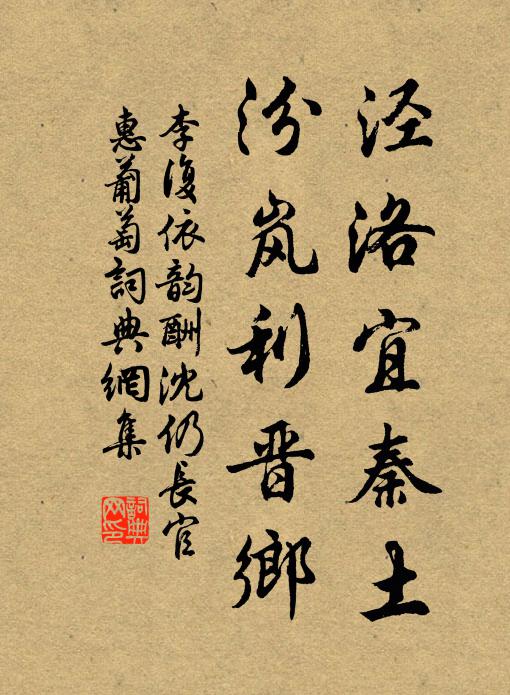 泾洛宜秦土
汾岚利晋鄉
李復依韵酬沈仍長官
惠葡萄詞典網集
詞典
网印